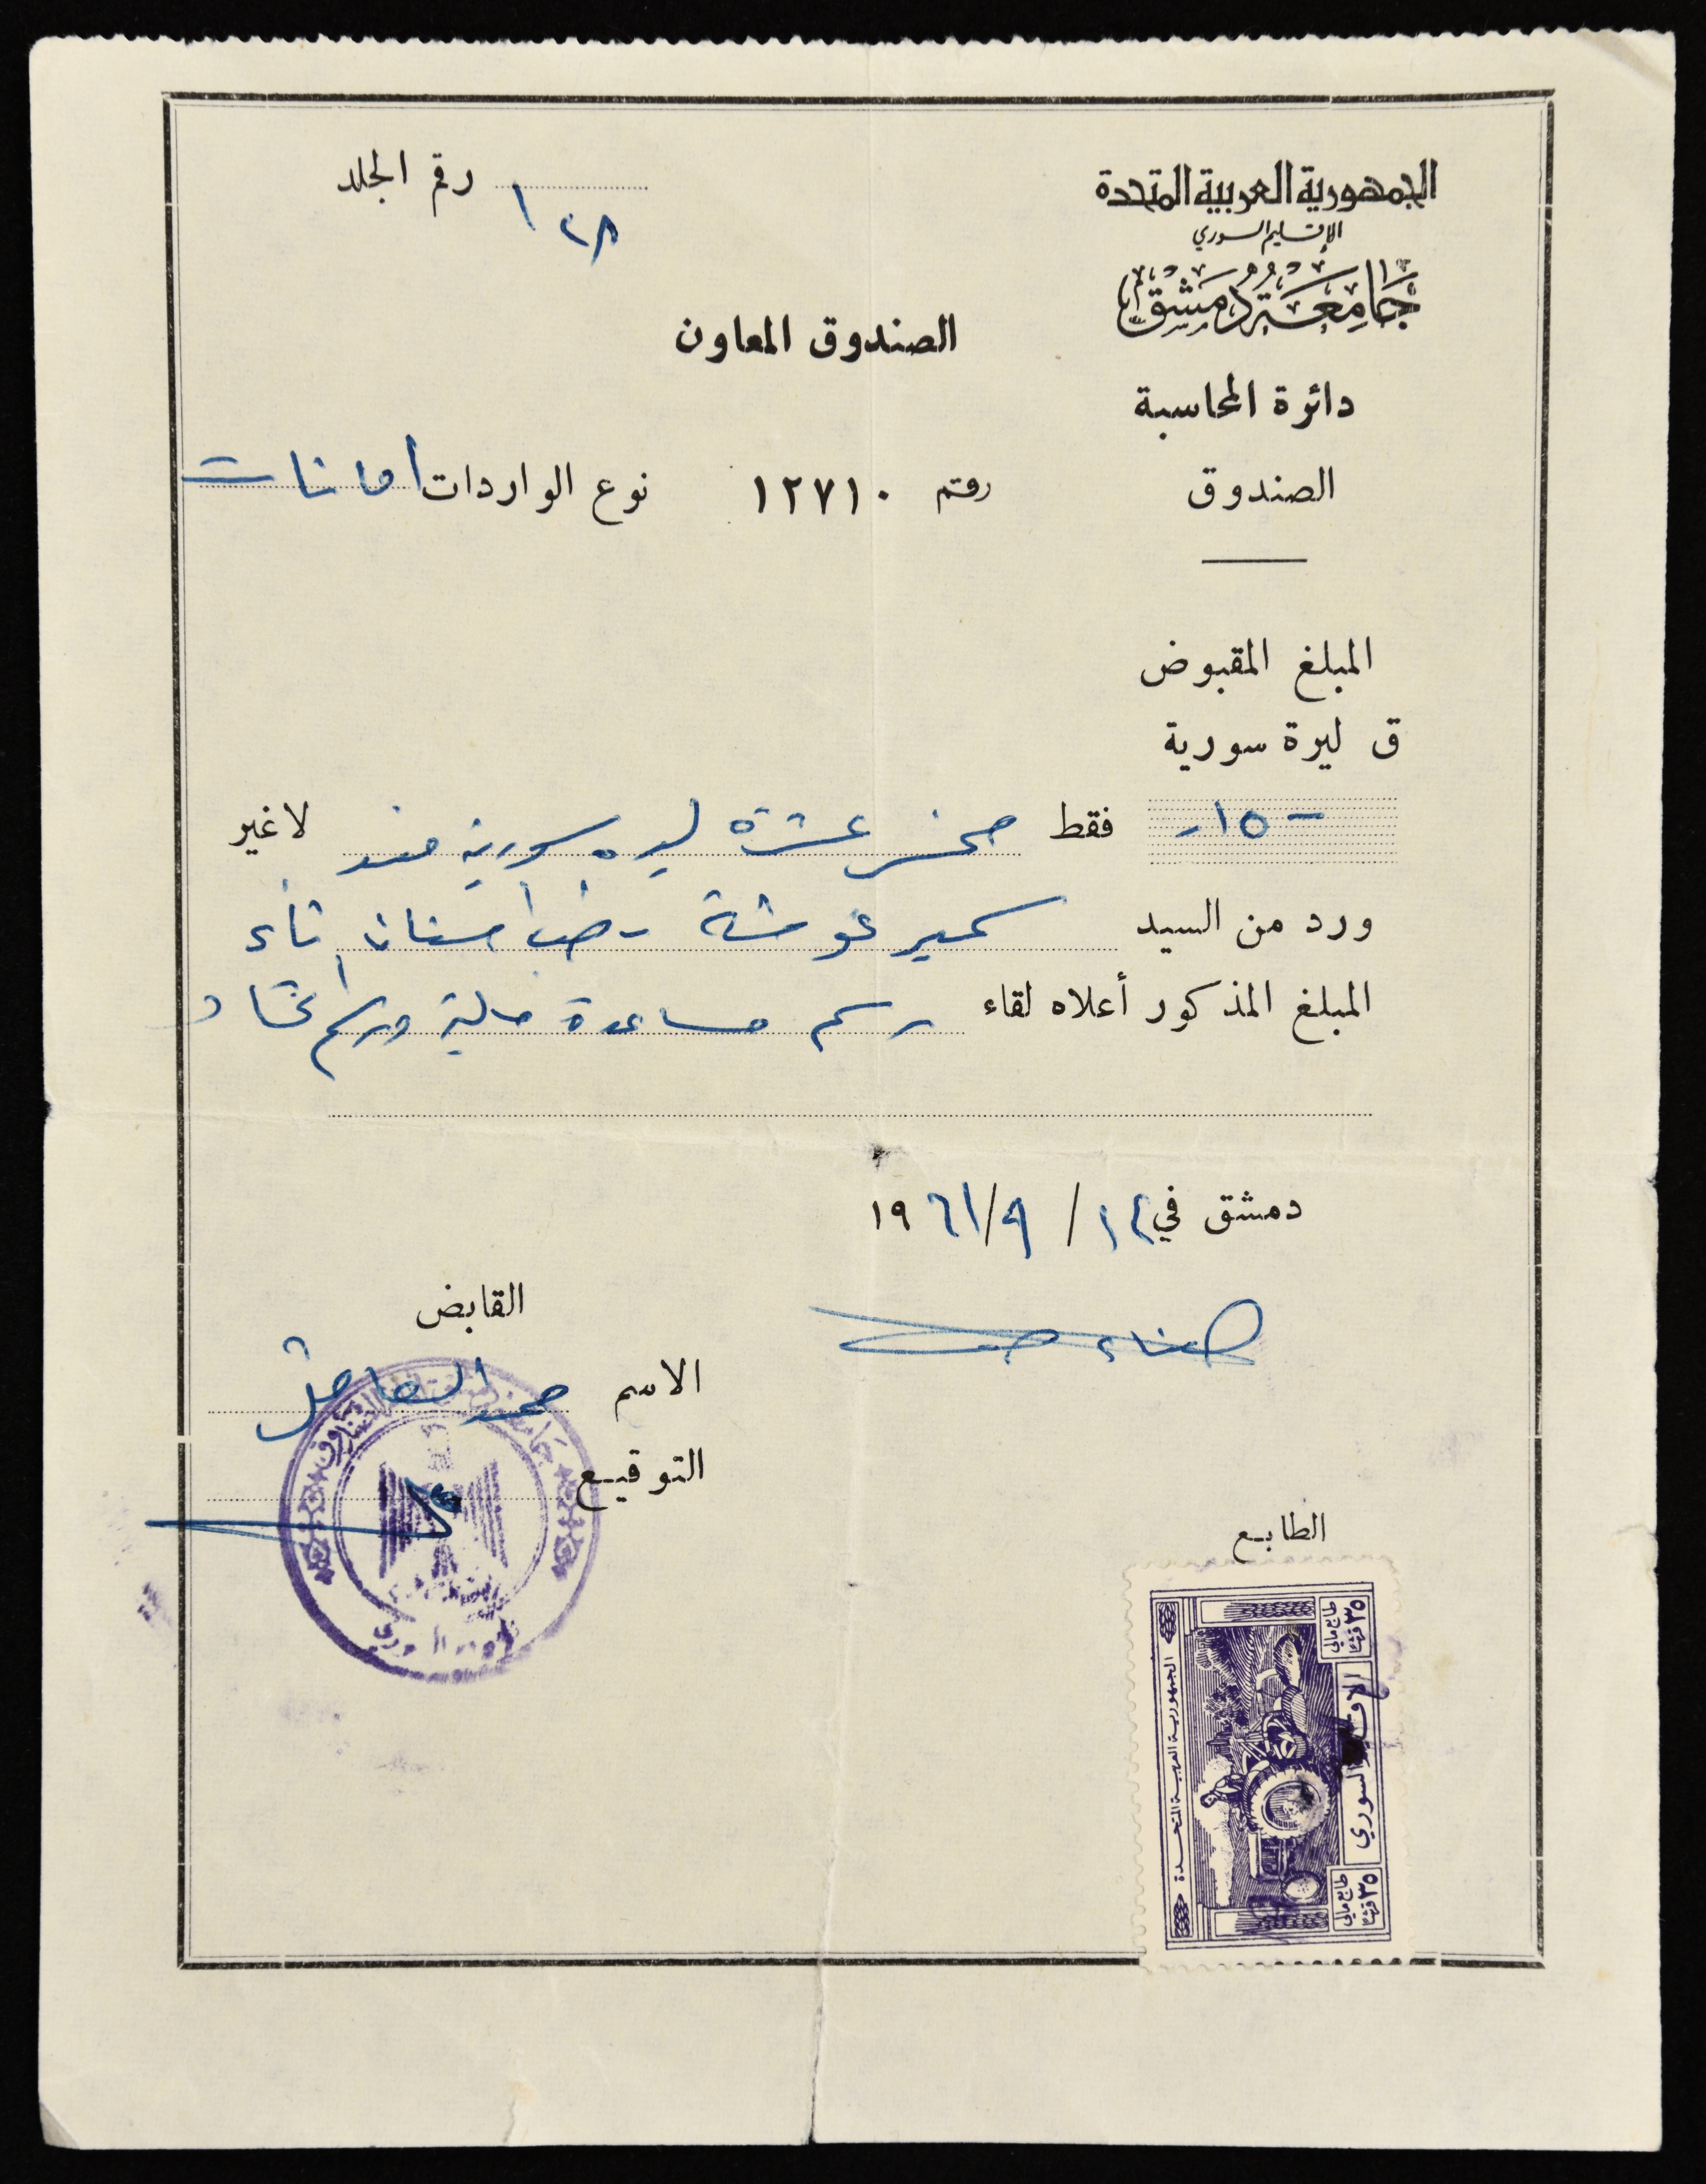 الجمهورية العربية المتحدة
رقم الجلد ١٢٨
الإقليم السوري
جامعة دمشق
الصندوق المعاون
دائرة المحاسبة
الصندوق
رقم ١٢٧١٠ نوع الواردات امانات
المبلغ المقبوض
ق ليرة سورية
-١٥- فقط خمس عشرة ليره سورية لاغير
ورد من السيد سمير عوشة اسنان
المبلغ المذكور أعلاه لقاء رسم مساعدة مالية ورسم اتحاد
دمشق في ١٢ / ٩ / ١٩٦١
القابض
الاسم محمد
التوقيع
الطابع
٣٥ قرشا
طابع مالي
الإقليم السوري
٣٥ قرشا
طابع مالي
الجمهورية العربية المتحدة